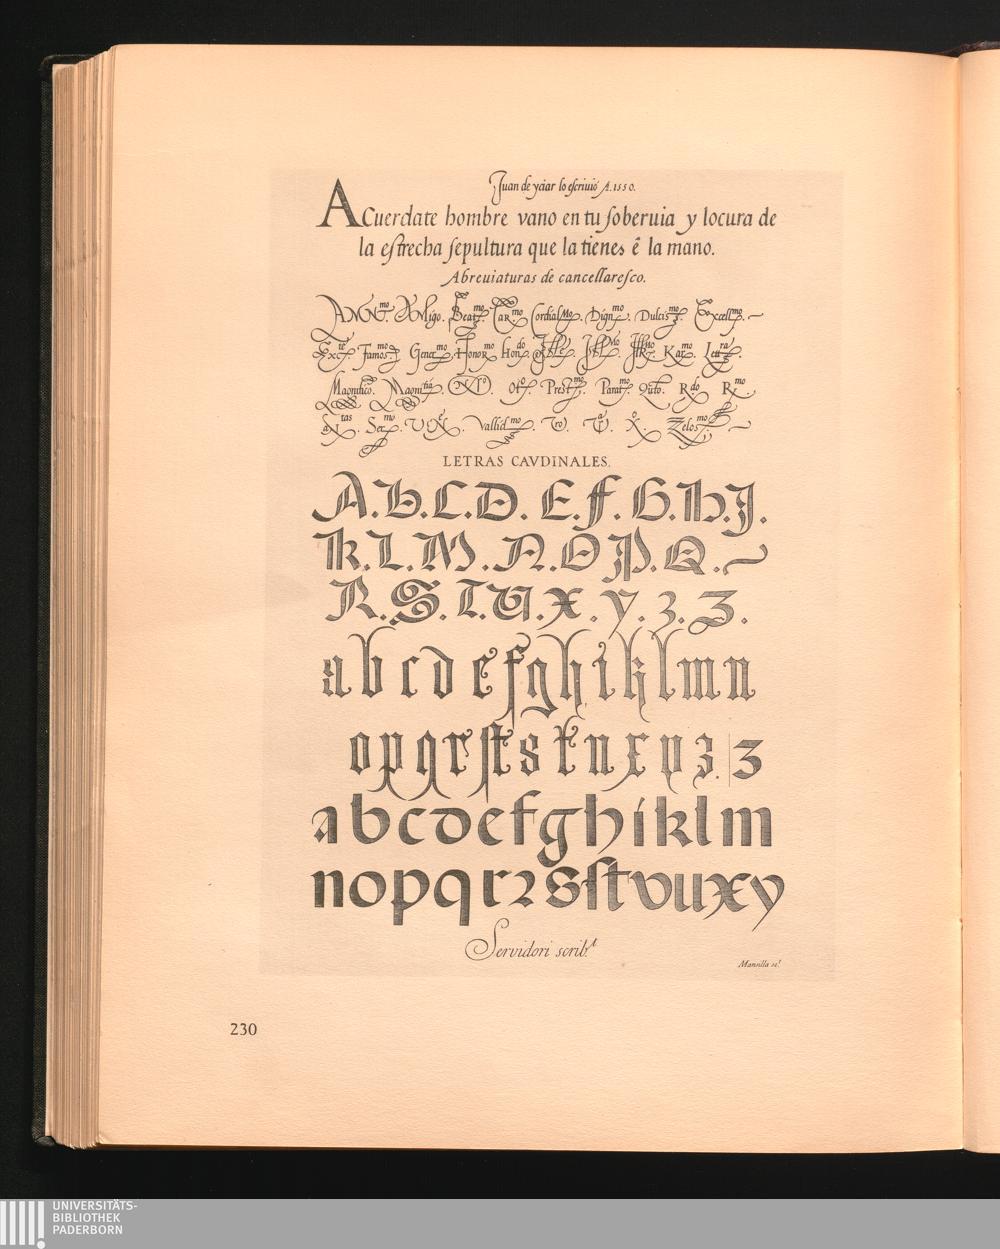 Juan de yciar lo eſcriuió A. 1550.
ACuerdate hombre vano en tu ſoberuia y locura de
la eſtrecha ſepultura que la tienes ē la mano.
Abreuiaturas de cancellareſco.
Amigo. Beat.mo Car.mo Cordialmo. Dign.mo Dulcis.mo Excellmo.
Famos.mo Gener.mo Honor.mo Hon.do Kar.mo Lett.ra
Magnifico. Magni.tia Prest.mo Parat.mo R.do R.mo
Ser.mo Vallid.mo Zelos.mo
LETRAS CAVDINALES.
A.B.C.D.E.F.G.H.J.
K.L.M.N.O.P.Q.
R.S.T.U.X.y.3.3.
a b c d e f g h i k l m n
o p q r ſt s t u x y z. 3
a b c d e f g h i k l m
n o p q r 2 s ſt v u x y
Servidori scrib.t
Mansilla sc.t
230
UNIVERSITÄTS-
BIBLIOTHEK
PADERBORN